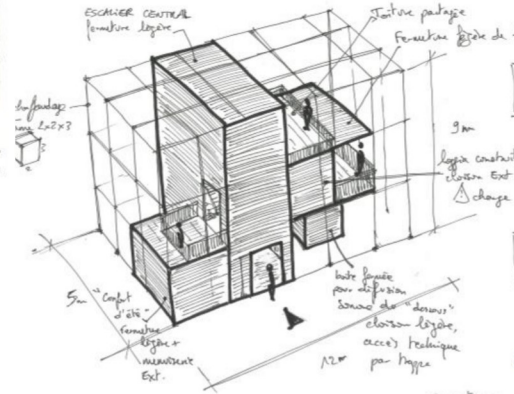 ESCALIER CENTRAL
fermeture légère
Toiture partagée
Fermeture légère de
2x2x3
9m
loggia construit
cloison Ext
change
5m
"Confort
d'été"
Fermeture
légère +
menuiserie
Ext.
boite fermée
pour diffusion
sonore du "dessous"
cloison légère,
accès technique
par trappe
12m